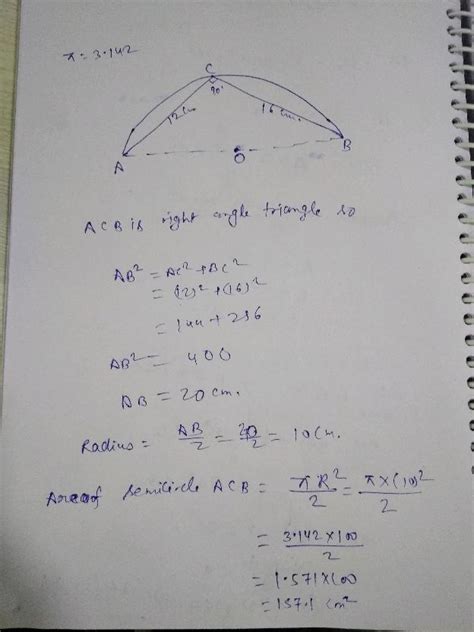 π = 3.142
C
90°
12 cm
16 cm.
A
O
B
ACB is right angle triangle so
AB² = AC² + BC²
= (12)² + (16)²
= 144 + 256
AB² = 400
AB = 20 cm.
Radius = AB/2 = 20/2 = 10 cm.
Area of semicircle ACB = πR²/2 = π×(10)²/2
= 3.142×100/2
= 1.571×100
= 157.1 cm²